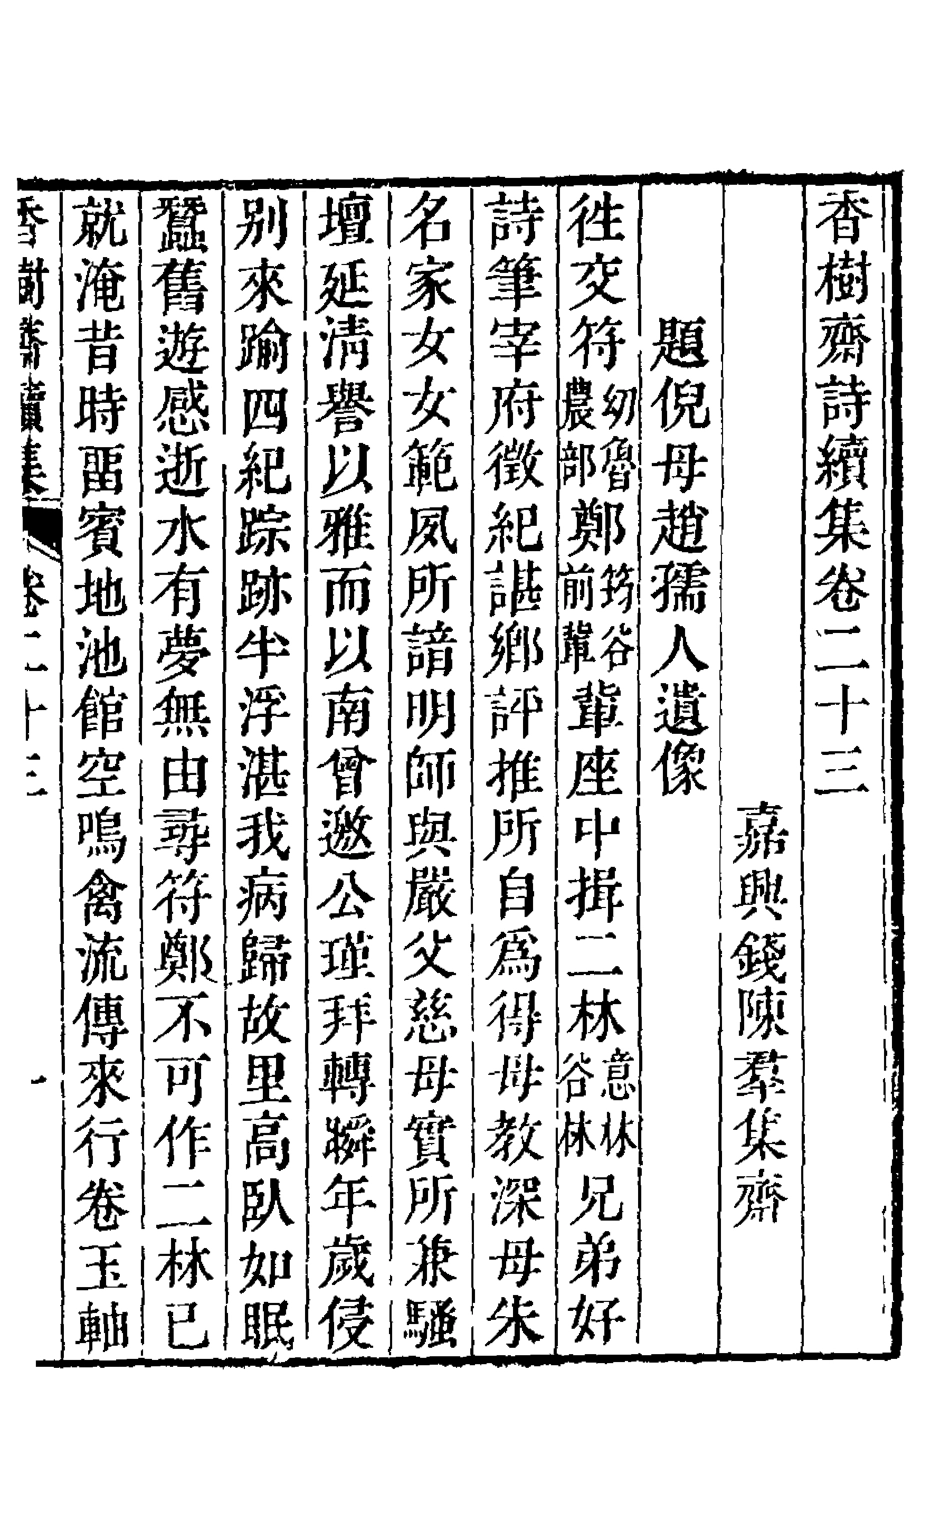 香樹齋詩續集卷二十三
嘉興錢陳羣集齋
題倪母趙孺人遺像
徃交符幼魯農部鄭筠谷前輩輩座中揖二林意林谷林兄弟好
詩筆宰府徵紀諶鄉評推所自爲得母教深母朱
名家女女範夙所諳明師與嚴父慈母實所兼騷
壇延淸譽以雅而以南曾邀公瑾拜轉瞬年歲侵
別來踰四紀踪跡半浮湛我病歸故里高臥如眠
蠶舊遊感逝水有夢無由尋符鄭不可作二林已
就淹昔時畱賓地池館空鳴禽流傳來行卷玉軸
香樹齋續集 卷二十三 一